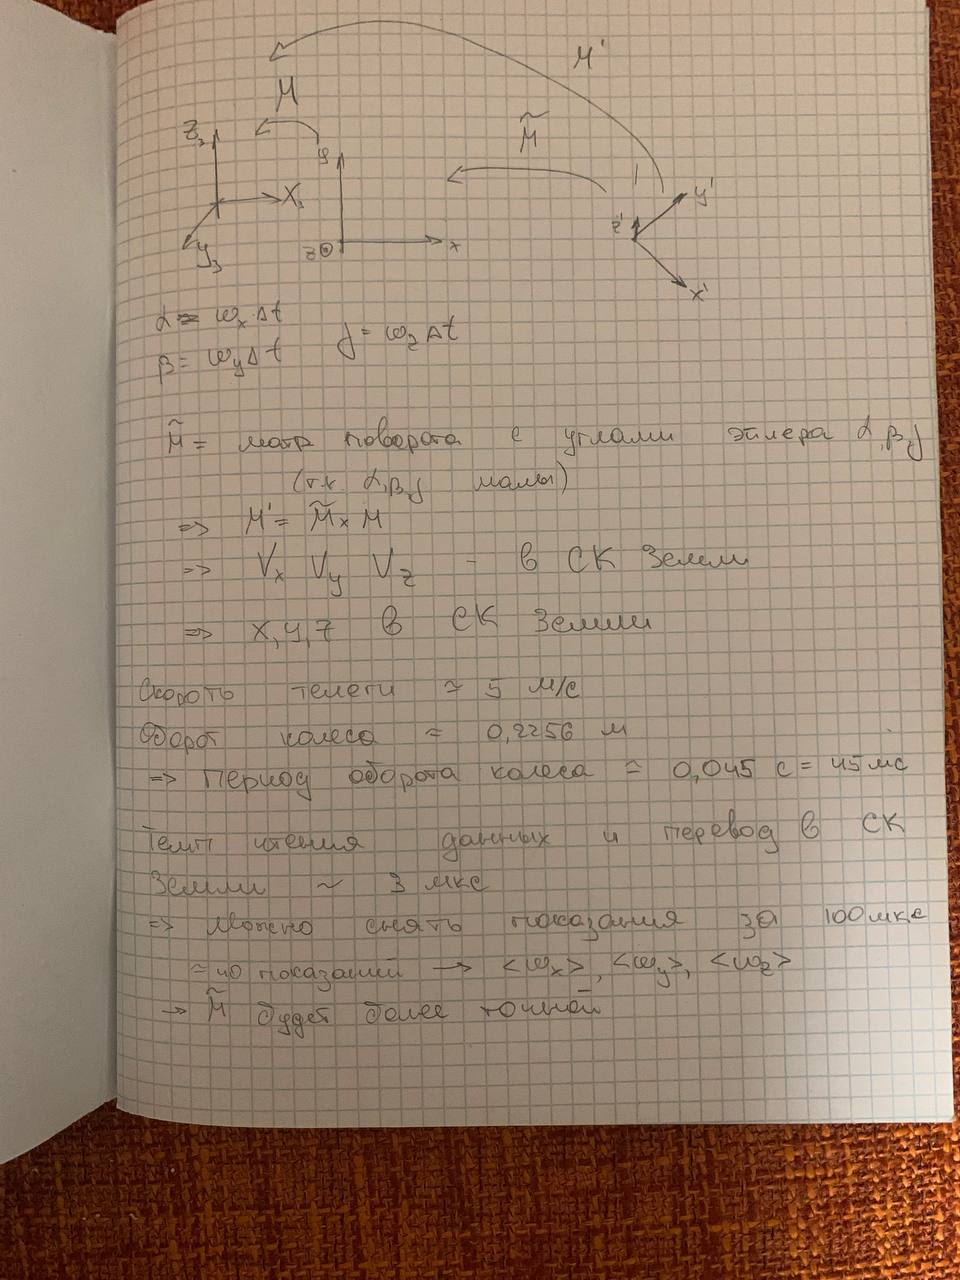 M'
M
M̃
Z₃
y
y'
X₃
z'
z
x
y₃
x'
α = ωₓ Δt
γ = ω_z Δt
β = ω_y Δt
M̃ = матр поворота с углами эйлера α, β, γ
(т.к α, β, γ малы)
=> M' = M̃ × M
=> Vₓ V_y V_z - в СК Земли
=> x, y, z в СК Земли
Скорость телеги ≈ 5 м/с
Оборот колеса ≈ 0,2256 м
=> Период оборота колеса ≈ 0,045 с = 45 мс
Темп чтения данных и перевод в СК
Земли ~ 3 мкс
=> можно снять показания за 100 мкс
≈ 40 показаний → <ωₓ>, <ω_y>, <ω_z>
→ M̃ будет более точной